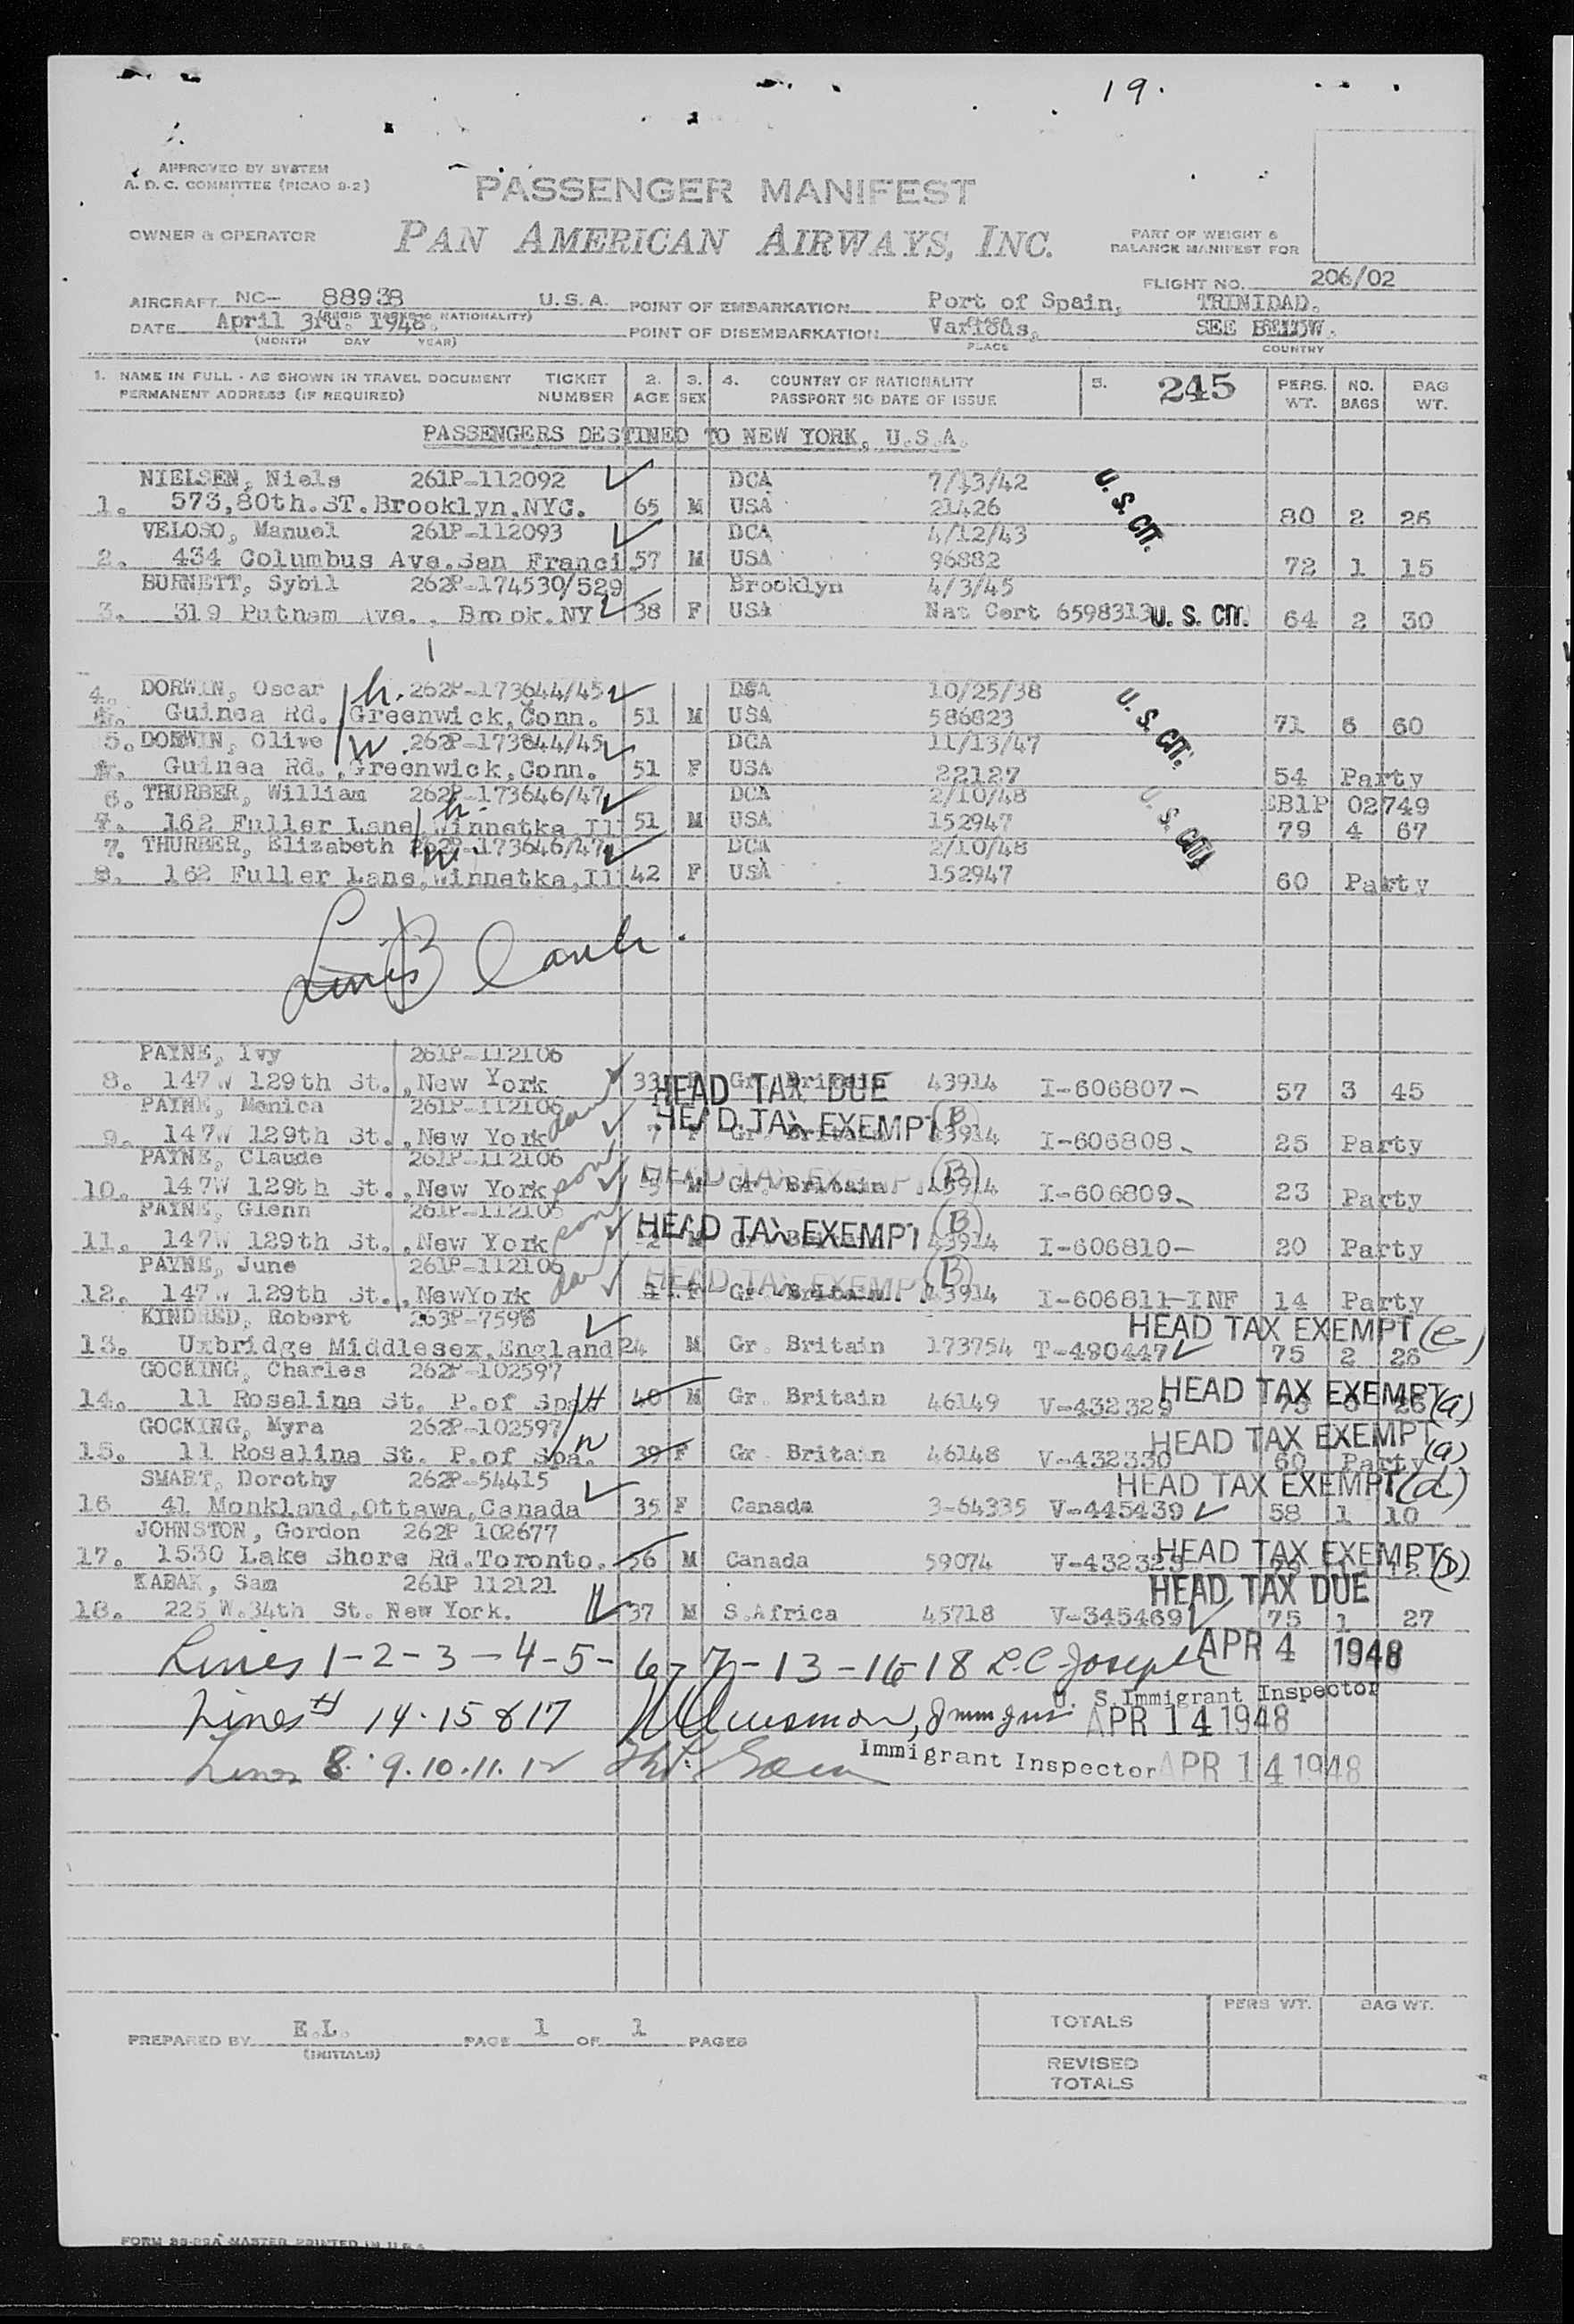 19.
APPROVED BY SYSTEM
A. D. C. COMMITTEE (PICAO 9-2)
PASSENGER MANIFEST
OWNER & OPERATOR
PAN AMERICAN AIRWAYS, INC.
PART OF WEIGHT &
BALANCE MANIFEST FOR
FLIGHT NO. 206/02
AIRCRAFT NC- 88938 U.S.A. POINT OF EMBARKATION Port of Spain, TRINIDAD.
DATE April 3rd. 1948. POINT OF DISEMBARKATION Various, SEE BELOW.
(MONTH DAY YEAR) PLACE COUNTRY
1. NAME IN FULL - AS SHOWN IN TRAVEL DOCUMENT TICKET 2. 3. 4. COUNTRY OF NATIONALITY 5. 245 PERS. NO. BAG
PERMANENT ADDRESS (IF REQUIRED) NUMBER AGE SEX PASSPORT NO DATE OF ISSUE WT. BAGS WT.
PASSENGERS DESTINED TO NEW YORK, U.S.A.
NIELSEN, Niels 261P-112092 DCA 7/13/42
1. 573,80th.ST.Brooklyn.NYC. 65 M USA 21426 U. S. CIT. 80 2 26
VELOSO, Manuel 261P-112093 DCA 4/12/43
2. 434 Columbus Ave.San Franci 57 M USA 96882 72 1 15
BURNETT, Sybil 262P-174530/529 Brooklyn 4/3/45
3. 319 Putnam Ave., Brook.NY 38 F USA Nat Cert 6598313 U. S. CIT. 64 2 30
4. DORWIN, Oscar h. 262P-173644/45 DCA 10/25/38
Guinea Rd. Greenwick,Conn. 51 M USA 586823 U. S. CIT. 71 6 60
5. DORWIN, Olive W. 262P-173644/45 DCA 11/13/47
Guinea Rd.,Greenwick,Conn. 51 F USA 22127 54 Party
6. THURBER, William 262P-173646/47 DCA 2/10/48 EB1P 02749
162 Fuller Lane, Winnetka,Il 51 M USA 152947 U. S. CIT. 79 4 67
7. THURBER, Elizabeth 262P-173646/47 DCA 2/10/48
162 Fuller Lane,Winnetka,Il 42 F USA 152947 60 Party
PAYNE, Ivy 261P-112106
8. 147W 129th St.,New York 33 F Gr. Britain 43914 I-606807 57 3 45
HEAD TAX DUE
PAYNE, Monica 261P-112106 HEAD TAX EXEMPT B
9. 147W 129th St.,New York 7 F Gr. Britain 43914 I-606808 25 Party
PAYNE, Claude 261P-112106 HEAD TAX EXEMPT B
10. 147W 129th St.,New York son M Gr. Britain 43914 I-606809 23 Party
PAYNE, Glenn 261P-112106 HEAD TAX EXEMPT B
11. 147W 129th St.,New York son 2 M Gr. Britain 43914 I-606810- 20 Party
PAYNE, June 261P-112106 HEAD TAX EXEMPT B
12. 147W 129th St.,NewYork F Gr. Britain 43914 I-606811-INF 14 Party
KINDRED, Robert 263P-7596 HEAD TAX EXEMPT (e)
13. Uxbridge Middlesex,England 24 M Gr. Britain 173754 T-490447 75 2 26
GOCKING, Charles 262P-102597 HEAD TAX EXEMPT (a)
14. 11 Rosalina St. P.of Spa. H 40 M Gr. Britain 46149 V-432329
GOCKING, Myra 262P-102597 HEAD TAX EXEMPT (a)
15. 11 Rosalina St. P.of Spa. 39 F Gr. Britain 46148 V-432330 60 Party
SMART, Dorothy 262P-54415 HEAD TAX EXEMPT (d)
16 41 Monkland,Ottawa,Canada 35 F Canada 3-64335 V-445439 58 1 10
JOHNSTON, Gordon 262P 102677 HEAD TAX EXEMPT (b)
17. 1530 Lake Shore Rd.Toronto. 56 M Canada 59074 V-432323
KABAK, Sam 261P 112121 HEAD TAX DUE
18. 225 W.34th St. New York. 37 M S.Africa 45718 V-345469 75 1 27
Lines 1-2-3-4-5-6-7-13-16-18 L.C. Joseph APR 4 1948
U. S. Immigrant Inspector
Lines 14.15 & 17 APR 14 1948
Lines 8. 9.10.11.12 Immigrant Inspector APR 14 1948
PREPARED BY E.L. PAGE 1 OF 1 PAGES
(INITIALS)
PERS WT. BAG WT.
TOTALS
REVISED
TOTALS